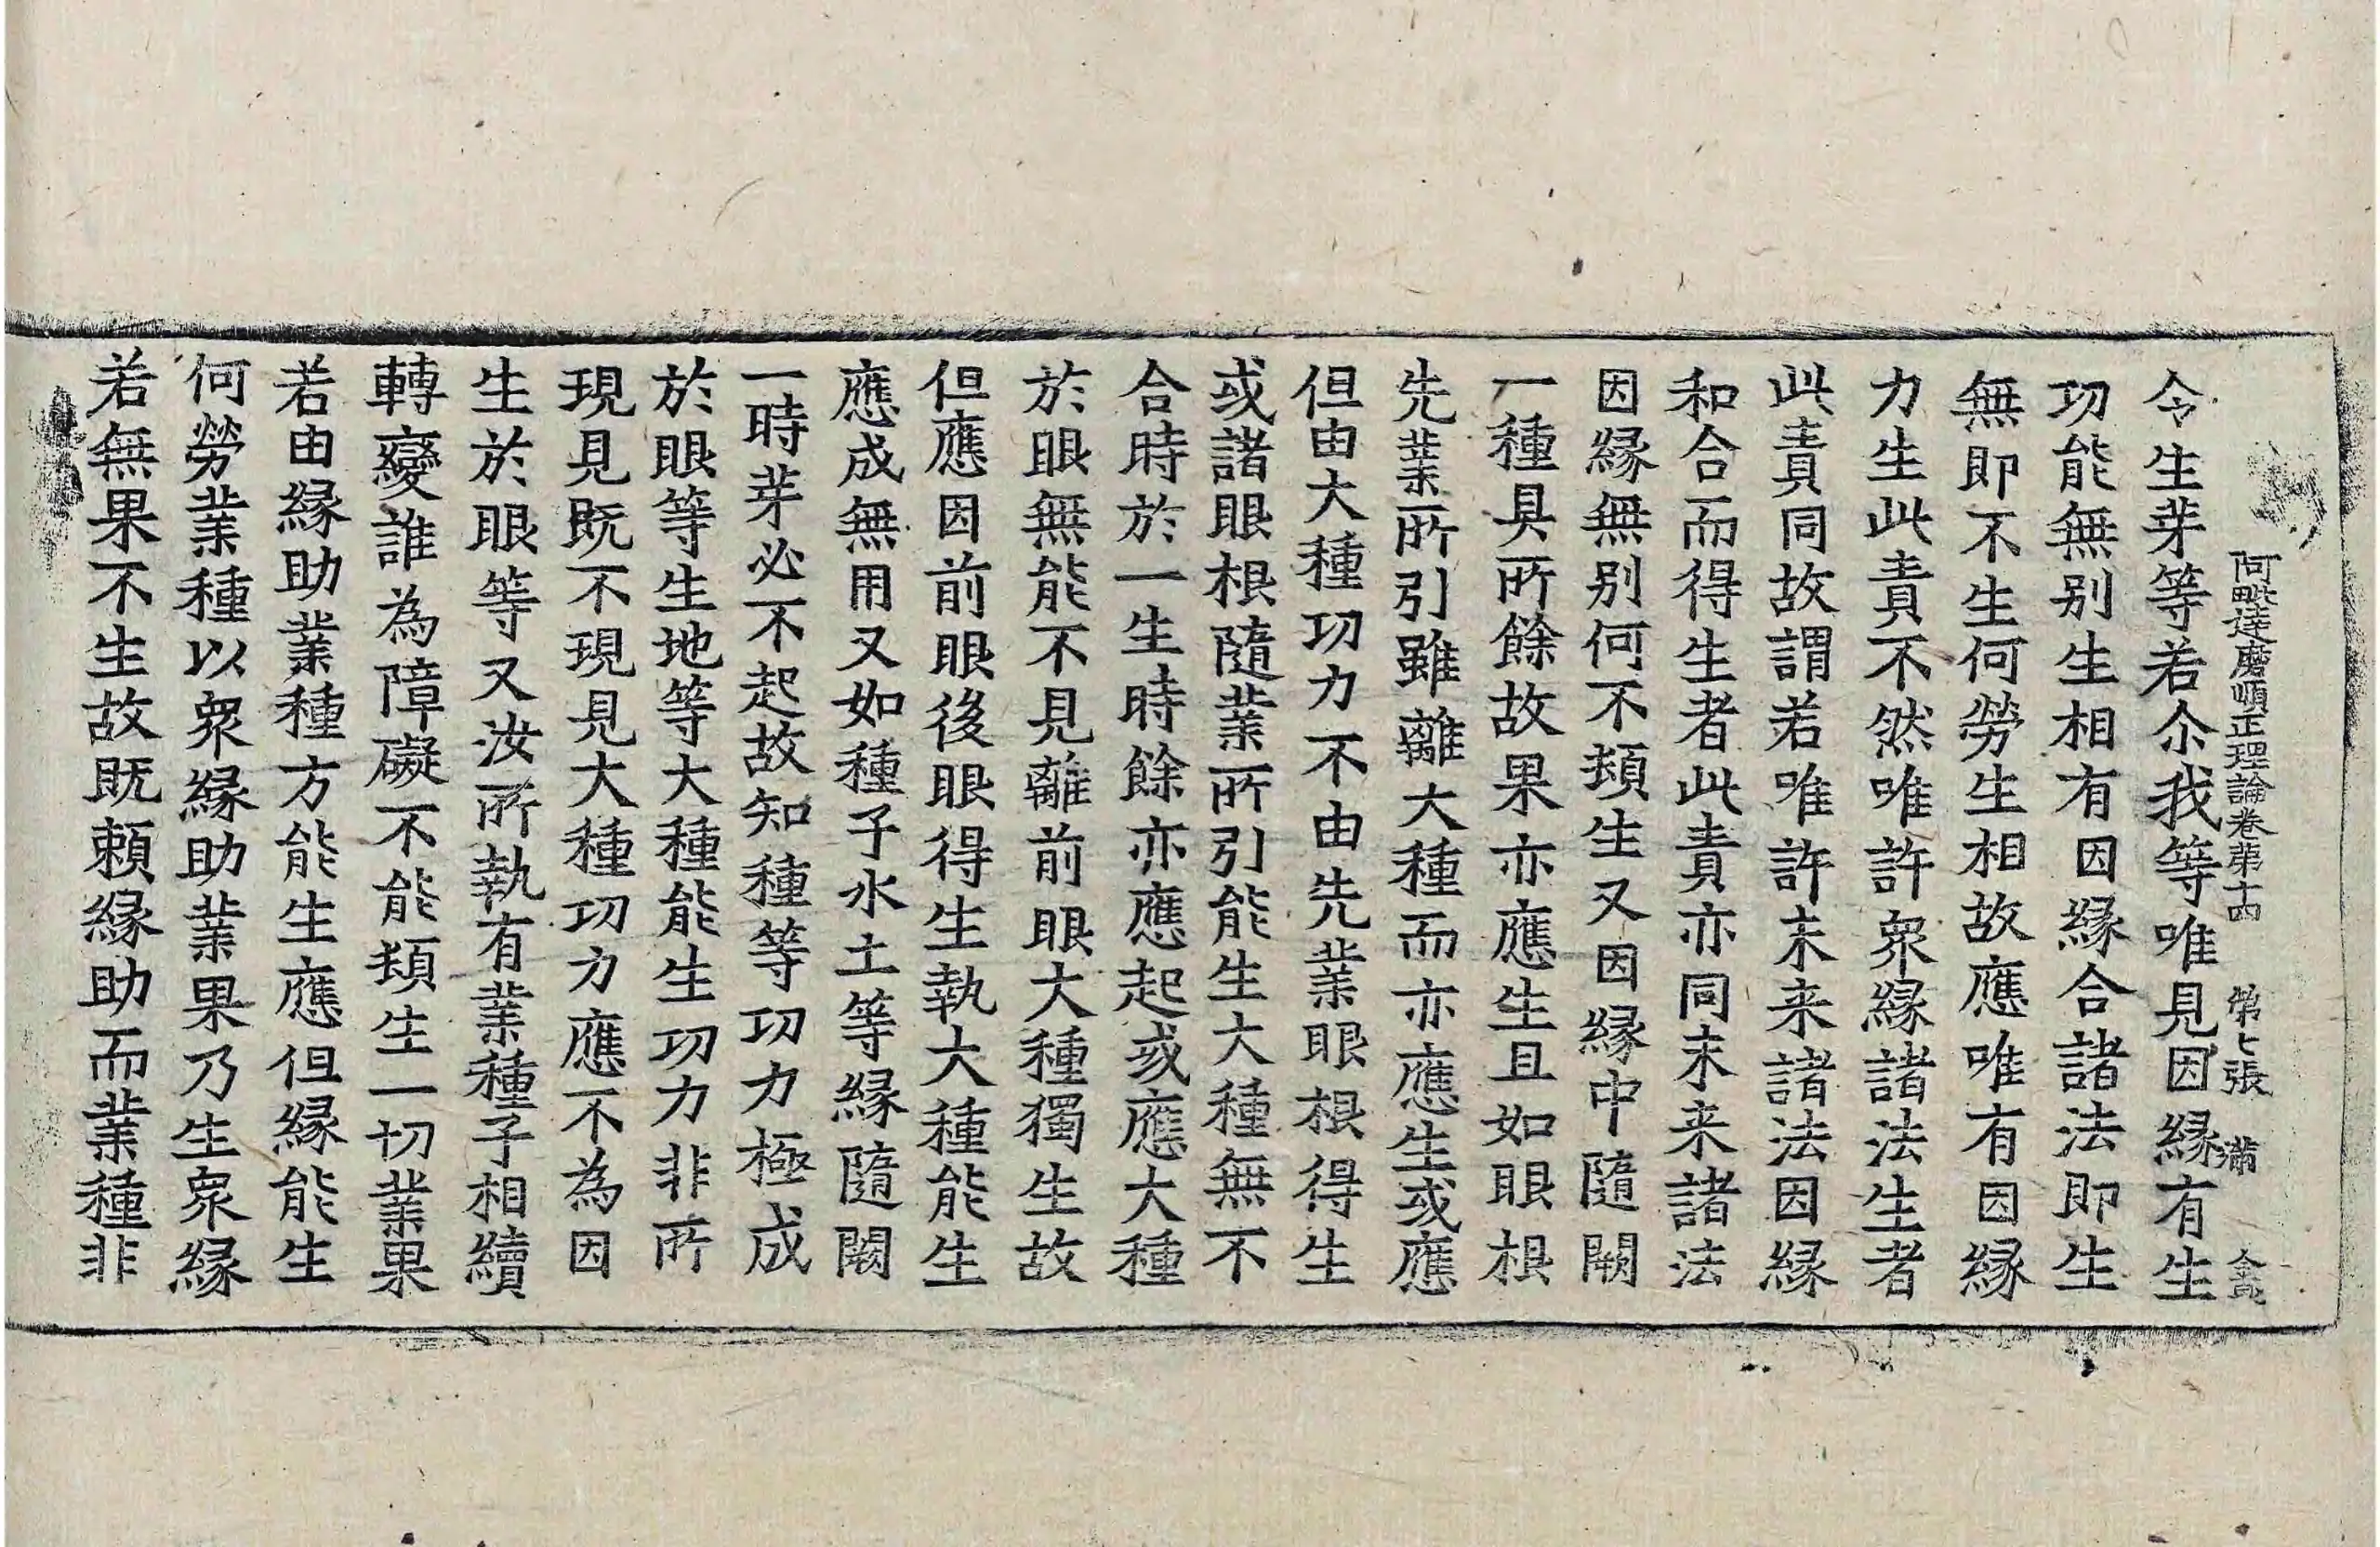 阿毗達磨順正理論卷第十四 第七張 滿
令生芽等若尒我等唯見因緣有生
功能無別生相有因緣合諸法即生
無即不生何勞生相故應唯有因緣
力生此責不然唯許衆緣諸法生者
此責同故謂若唯許未来諸法因緣
和合而得生者此責亦同未来諸法
因緣無别何不頓生又因緣中隨闕
一種具所餘故果亦應生且如眼根
先業所引雖離大種而亦應生或應
但由大種功力不由先業眼根得生
或諸眼根隨業所引能生大種無不
合時於一生時餘亦應起或應大種
於眼無能不見離前眼大種獨生故
但應因前眼後眼得生執大種能生
應成無用又如種子水土等緣隨闕
一時芽必不起故知種等功力極成
於眼等生地等大種能生功力非所
現見既不現見大種功力應不為因
生於眼等又汝所執有業種子相續
轉變誰為障礙不能頓生一切業果
若由緣助業種方能生應但緣能生
何勞業種以衆緣助業果乃生衆緣
若無果不生故既頼緣助而業種非